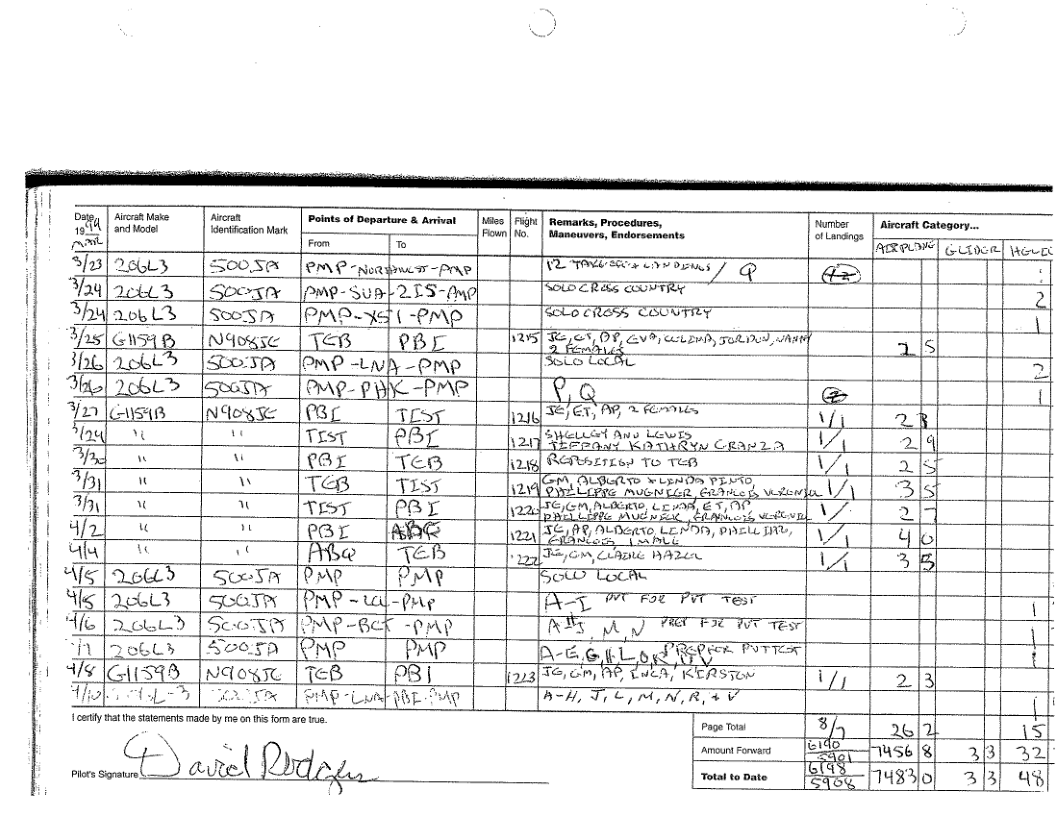 Date 1999 MAR Aircraft Make and Model Aircraft Identification Mark Points of Departure & Arrival From To Miles Flown Flight No. Remarks, Procedures, Maneuvers, Endorsements Number of Landings Aircraft Category... AIRPLANE GLIDER HELIC
3/23 206L3 500JA PMP-NORTHWEST-PMP 12 TAKEOFF & LANDINGS / Q 12
3/24 206L3 500JA PMP-SUA-2IS-PMP SOLO CROSS COUNTRY 2
3/24 206L3 500JA PMP-X51-PMP SOLO CROSS COUNTRY 1
3/25 G1159B N908JE TEB PBI 1215 JE, ET, AP, EVA, CELINA, JORDAN, NANNY 2 5
2 FEMALES
3/26 206L3 500JA PMP-LNA-PMP SOLO LOCAL 2
3/26 206L3 500JA PMP-PHK-PMP P, Q 1
3/27 G1159B N908JE PBI TIST 1216 JE, ET, AP, 2 FEMALES 1/1 2 8
3/29 " " TIST PBI 1217 SHELLEY AND LEWIS 1/1 2 9
TIFFANY KATHRYN GRANZA
3/30 " " PBI TEB 1218 REPOSITION TO TEB 1/1 2 5
3/31 " " TEB TIST 1219 GM, ALBERTO & LINDA PINTO, 1/1 3 5
PHILLIPPE MUGNIER, FRANCOIS
3/31 " " TIST PBI 1220 JE, GM, ALBERTO, LINDA, ET, AP 1/1 2 7
FRANCOIS
4/2 " " PBI ABQ 1221 JE, AP, ALBERTO LINDA, 1/1 4 0
FRANCOIS 1 MALE
4/4 " " ABQ TEB 1222 JE, GM, CLAIRE HAZEL 1/1 3 5
4/5 206L3 500JA PMP PMP SOLO LOCAL
4/5 206L3 500JA PMP-LCL-PMP A-I PVT FOR PVT TEST 1
4/6 206L3 500JA PMP-BCT-PMP M, N PREP FOR PVT TEST 1
206L3 500JA PMP PMP PREP FOR PVT TEST 1
4/8 G1159B N908JE TEB PBI 1223 JE, GM, AP, INCA, KIRSTON 1/1 2 3
4/10 PMP-LNA-PBI-PMP A-H, J, L, M, N, R, & V 1
I certify that the statements made by me on this form are true.
Page Total 8/7 26 2 15
Amount Forward 6190 5901 7456 8 3 3 32
Pilot's Signature David Rodgers
Total to Date 6198 5908 7483 0 3 3 48